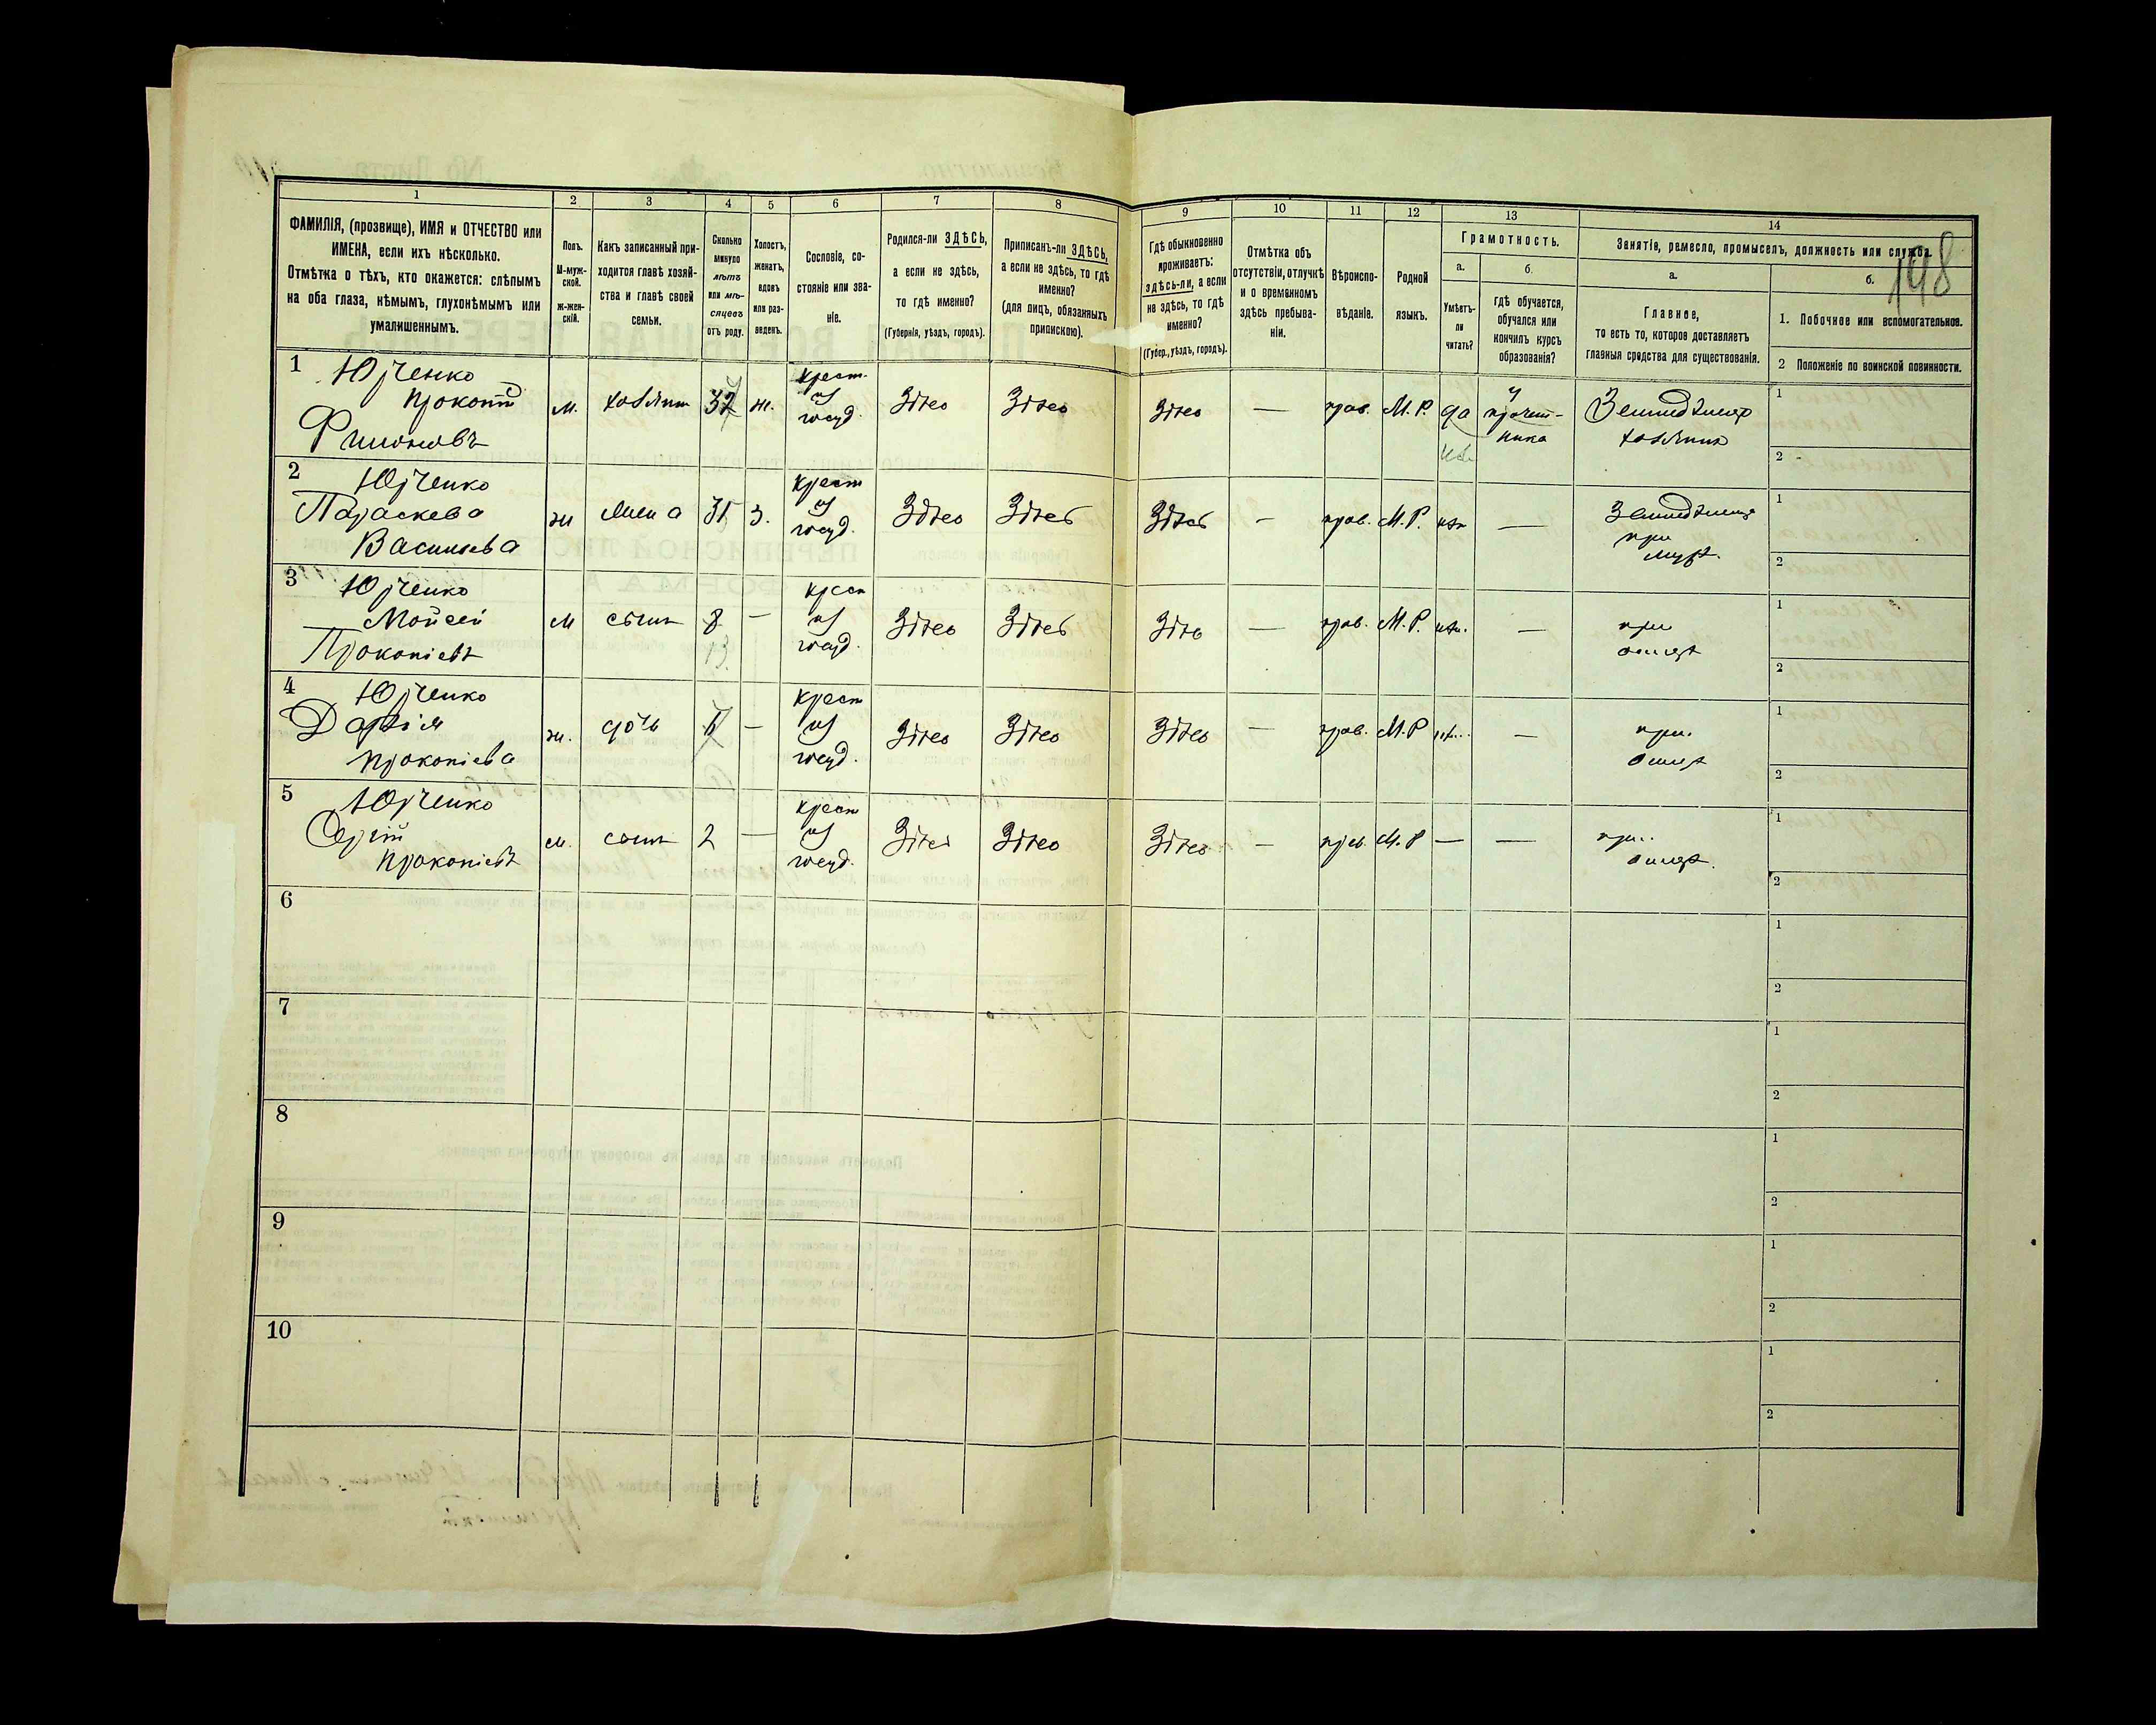 198
1 2 3 4 5 6 7 8 9 10 11 12 13 14
ФАМИЛІЯ, (прозвище), ИМЯ и ОТЧЕСТВО или
ИМЕНА, если ихъ нѣсколько.
Отмѣтка о тѣхъ, кто окажется: слѣпымъ
на оба глаза, нѣмымъ, глухонѣмымъ или
умалишеннымъ.
Полъ.
М-муж-
ской.
ж-жен-
скій.
Какъ записанный при-
ходится главѣ хозяй-
ства и главѣ своей
семьи.
Сколько
минуло
лѣтъ
или мѣ-
сяцевъ
отъ роду.
Холостъ,
женатъ,
вдовъ
или раз-
веденъ.
Сословіе, со-
стояніе или зва-
ніе.
Родился-ли ЗДѢСЬ,
а если не здѣсь,
то гдѣ именно?
(Губернія, уѣздъ, городъ).
Приписанъ-ли ЗДѢСЬ,
а если не здѣсь, то гдѣ
именно?
(для лицъ, обязанныхъ
припискою).
Гдѣ обыкновенно
проживаетъ:
здѣсь-ли, а если
не здѣсь, то гдѣ
именно?
(Губер., уѣздъ, городъ).
Отмѣтка объ
отсутствіи, отлучкѣ
и о временномъ
здѣсь пребыва-
ніи.
Вѣроиспо-
вѣданіе.
Родной
языкъ.
Грамотность.
а.
Умѣетъ-
ли
читать?
б.
гдѣ обучается,
обучался или
кончилъ курсъ
образованія?
Занятіе, ремесло, промыселъ, должность или служба.
а.
Главное,
то есть то, которое доставляетъ
главныя средства для существованія.
б.
1. Побочное или вспомогательное.
2 Положеніе по воинской повинности.
1 Юрченко
Прокопій
Филоновъ
м. хозяинъ 37 ж.
крест.
из
госуд.
Здѣсь Здѣсь Здѣсь — прав. М. Р. да
Земледѣлецъ
хозяинъ
1
2 -
2 Юрченко
Параскева
Васильева
ж жена 31 з.
крест
из
госуд.
Здѣсь Здѣсь Здѣсь — прав. М. Р. нѣт —
Земледѣлецъ
при
мужѣ.
1
2
3 Юрченко
Мойсей
Прокопіевъ
м сынъ 8 —
13
крест
из
госуд.
Здѣсь Здѣсь Здѣсь — прав. М. Р. нѣт. —
при
отцѣ
1
2
4 Юрченко
Дарія
Прокопіева
ж. дочь —
крест
из
госуд.
Здѣсь Здѣсь Здѣсь — прав. М. Р нѣт. —
при.
отцѣ
1
2
5 Юрченко
Сергій
Прокопіевъ
м. сынъ 2 —
крест
из
госуд.
Здѣсь Здѣсь Здѣсь — прав. М. Р — —
при.
отцѣ.
1
2
6
1
2
7
1
2
8
1
2
9
1
2
10
1
2